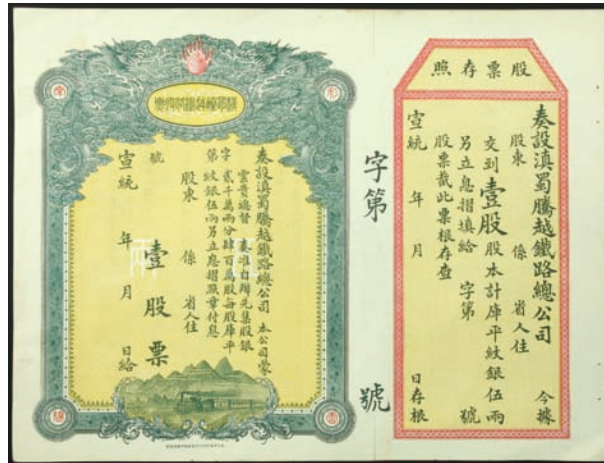 股票存照
奏設滇蜀騰越鐵路總公司 今據
股東 係 省人住
交到壹股股本計庫平紋銀伍兩
另立息摺填給 字第 號
股票截此票根存查
宣統 年 月 日存根
字第 號
奏設滇蜀騰越鐵路總公司 本公司蒙
雲貴總督 奏准自辦先集股銀
貳千萬兩分肆百萬股每股庫平
紋銀伍兩另立息摺照章付息
股東 係 省人住
字第 號
壹股票
宣統 年 月 日給